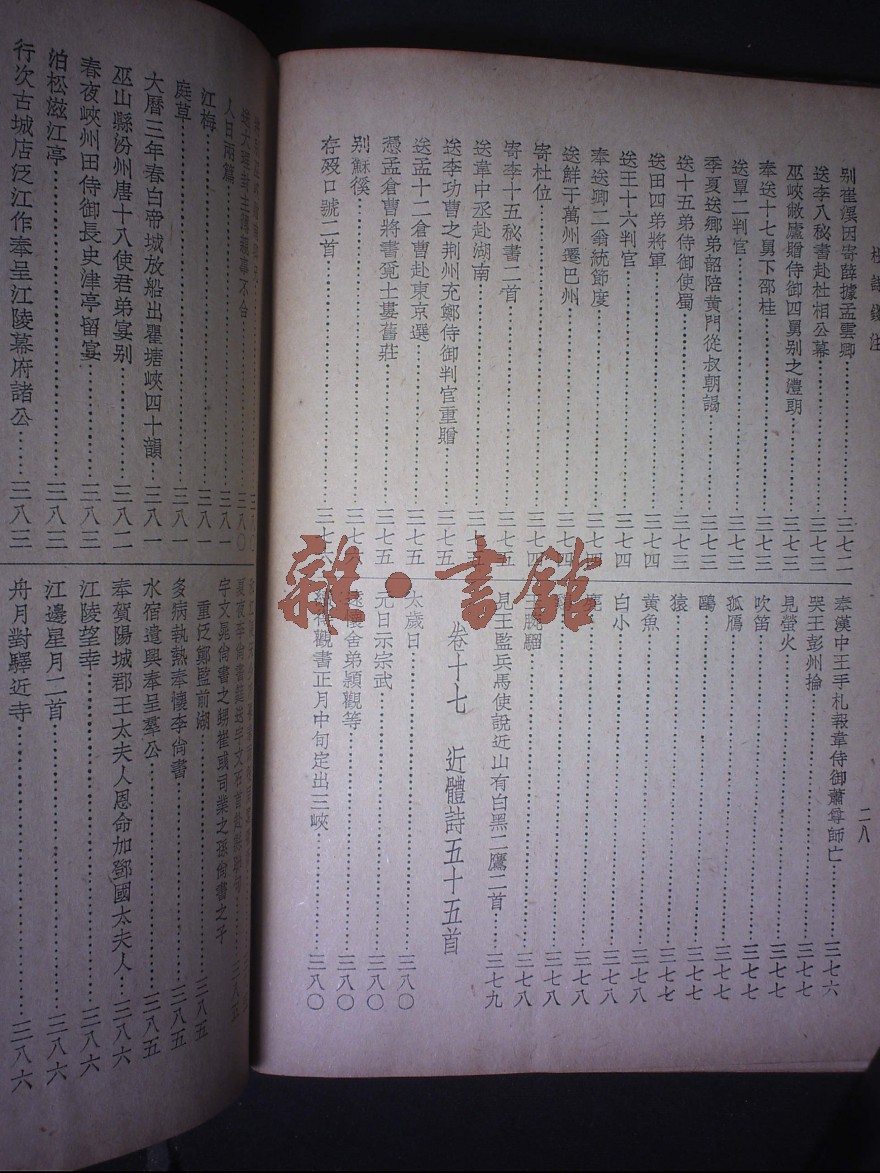 杜詩錢注
二八
別崔潩因寄薛據孟雲卿…三七二
送李八秘書赴杜相公幕…三七三
巫峽敝廬贈侍御四舅別之澧朗…三七三
奉送十七舅下邵桂…三七三
送覃二判官…三七三
送十五弟侍御使蜀…三七三
季夏送鄉弟韶陪黃門從叔朝謁…三七三
送田四弟將軍…三七四
送王十六判官…三七四
奉送卿二翁統節度…三七四
送鮮于萬州遷巴州…三七四
寄杜位…三七四
寄李十五秘書二首…三七五
送韋中丞赴湖南…三七五
送李功曹之荊州充鄭侍御判官重贈…三七五
送孟十二倉曹赴東京選…三七五
憑孟倉曹將書覓土婁舊莊…三七五
別穌徯…三七六
存歿口號二首…三七六
奉漢中王手札報韋侍御蕭尊師亡…三七六
哭王彭州掄…三七七
見螢火…三七七
吹笛…三七七
孤鴈…三七七
鷗…三七七
猿…三七七
黃魚…三七八
白小…三七八
三七八
三七八
腕騮…三七八
見王監兵馬使說近山有白黑二鷹二首…三七九
卷十七 近體詩五十五首
太歲日…三八〇
元日示宗武…三八〇
懷舍弟穎觀等…三八〇
夜觀書正月中旬定出三峽…三八〇
人日兩篇…三八一
江梅…三八一
庭草…三八一
大曆三年春白帝城放船出瞿塘峽四十韻…三八一
巫山縣汾州唐十八使君弟宴別…三八二
春夜峽州田侍御長史津亭留宴…三八三
泊松滋江亭…三八三
行次古城店泛江作奉呈江陵幕府諸公…三八三
宇文晁尙書之甥崔彧司業之孫尙書之子
重泛鄭監前湖…三八五
多病執熱奉懷李尙書…三八五
水宿遣興奉呈羣公…三八五
奉賀陽城郡王太夫人恩命加鄧國太夫人…三八六
江陵望幸…三八六
江邊星月二首…三八六
舟月對驛近寺…三八六
雜·書館